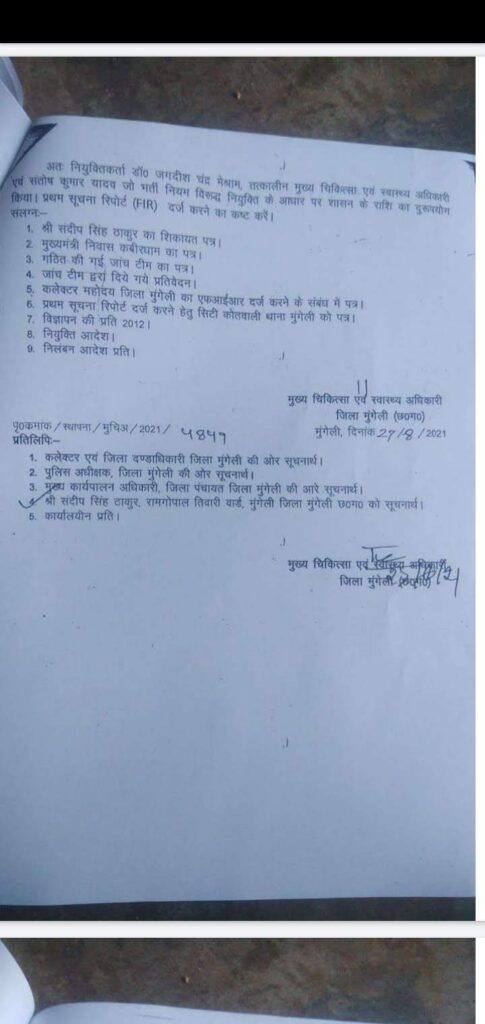 अतः नियुक्तिकर्ता डॉ0 जगदीश चंद्र मेश्राम, तत्कालीन मुख्य चिकित्सा एवं स्वास्थ्य अधिकारी
एवं संतोष कुमार यादव जो भर्ती नियम विरूद्ध नियुक्ति के आधार पर शासन के राशि का दुरूपयोग
किया। प्रथम सूचना रिपोर्ट (FIR) दर्ज करने का कष्ट करें।
संलग्नः–
1. श्री संदीप सिंह ठाकुर का शिकायत पत्र।
2. मुख्यमंत्री निवास कबीरधाम का पत्र।
3. गठित की गई जांच टीम का पत्र।
4. जांच टीम द्वारा दिये गये प्रतिवेदन।
5. कलेक्टर महोदय जिला मुंगेली का एफआईआर दर्ज करने के संबंध में पत्र।
6. प्रथम सूचना रिपोर्ट दर्ज करने हेतु सिटी कोतवाली थाना मुंगेली को पत्र।
7. विज्ञापन की प्रति 2012।
8. नियुक्ति आदेश।
9. निलंबन आदेश प्रति।
मुख्य चिकित्सा एवं स्वास्थ्य अधिकारी
जिला मुंगेली (छ0ग0)
पृ0कमांक / स्थापना / मुचिअ / 2021 / 4847
मुंगेली, दिनांक 27/8/2021
प्रतिलिपिः–
1. कलेक्टर एवं जिला दण्डाधिकारी जिला मुंगेली की ओर सूचनार्थ।
2. पुलिस अधीक्षक, जिला मुंगेली की ओर सूचनार्थ।
3. मुख्य कार्यपालन अधिकारी, जिला पंचायत जिला मुंगेली की आरे सूचनार्थ।
4. श्री संदीप सिंह ठाकुर, रामगोपाल तिवारी वार्ड, मुंगेली जिला मुंगेली छ0ग0 को सूचनार्थ।
5. कार्यालयीन प्रति।
मुख्य चिकित्सा एवं स्वास्थ्य अधिकारी
जिला मुंगेली (छ0ग0)